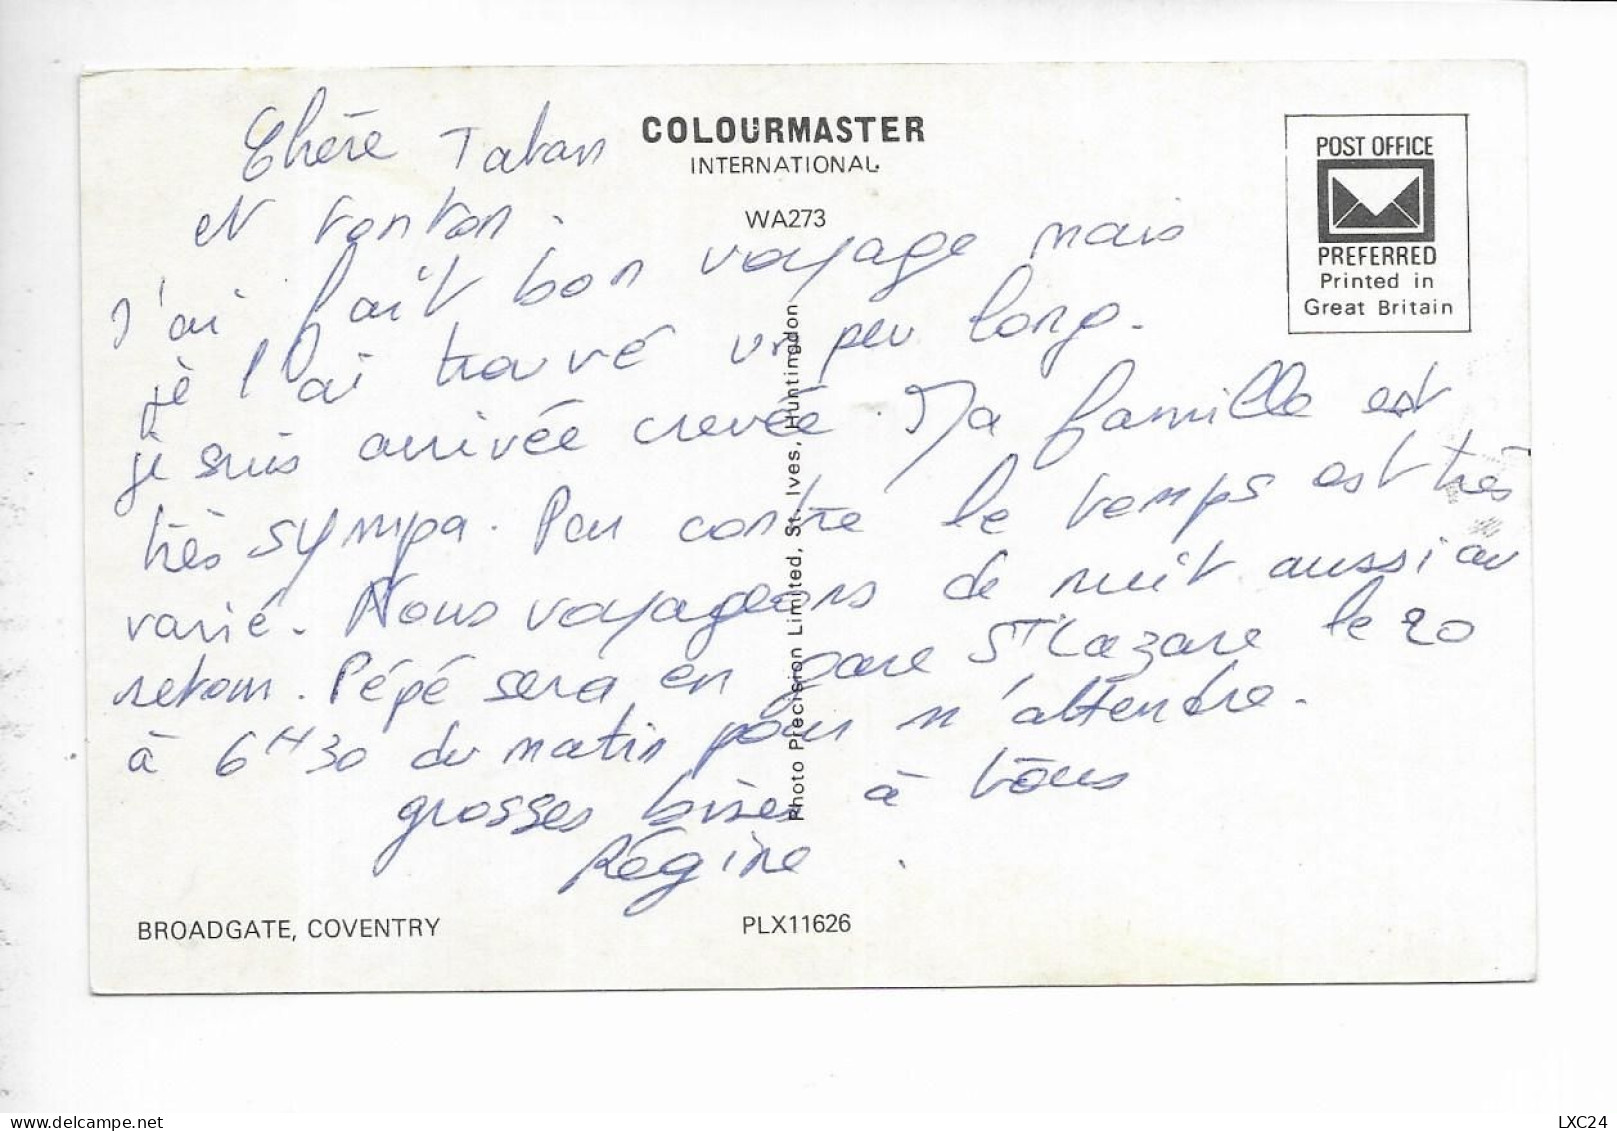 COLOURMASTER
INTERNATIONAL
WA273
POST OFFICE
PREFERRED
Printed in
Great Britain
Chère Tatan
et tonton.
J'ai fait bon voyage mais
je l'ai trouvé un peu long.
je suis arrivée crevée. Ma famille est
très sympa. Par contre le temps est très
varié. Nous voyageons de nuit aussi au
retour. Pépé sera en gare St Lazare le 20
à 6H30 du matin pour m'attendre.
grosses bises à tous
Régine.
Photo Precision Limited, St. Ives, Huntingdon
BROADGATE, COVENTRY
PLX11626
www.delcampe.net
LXC24